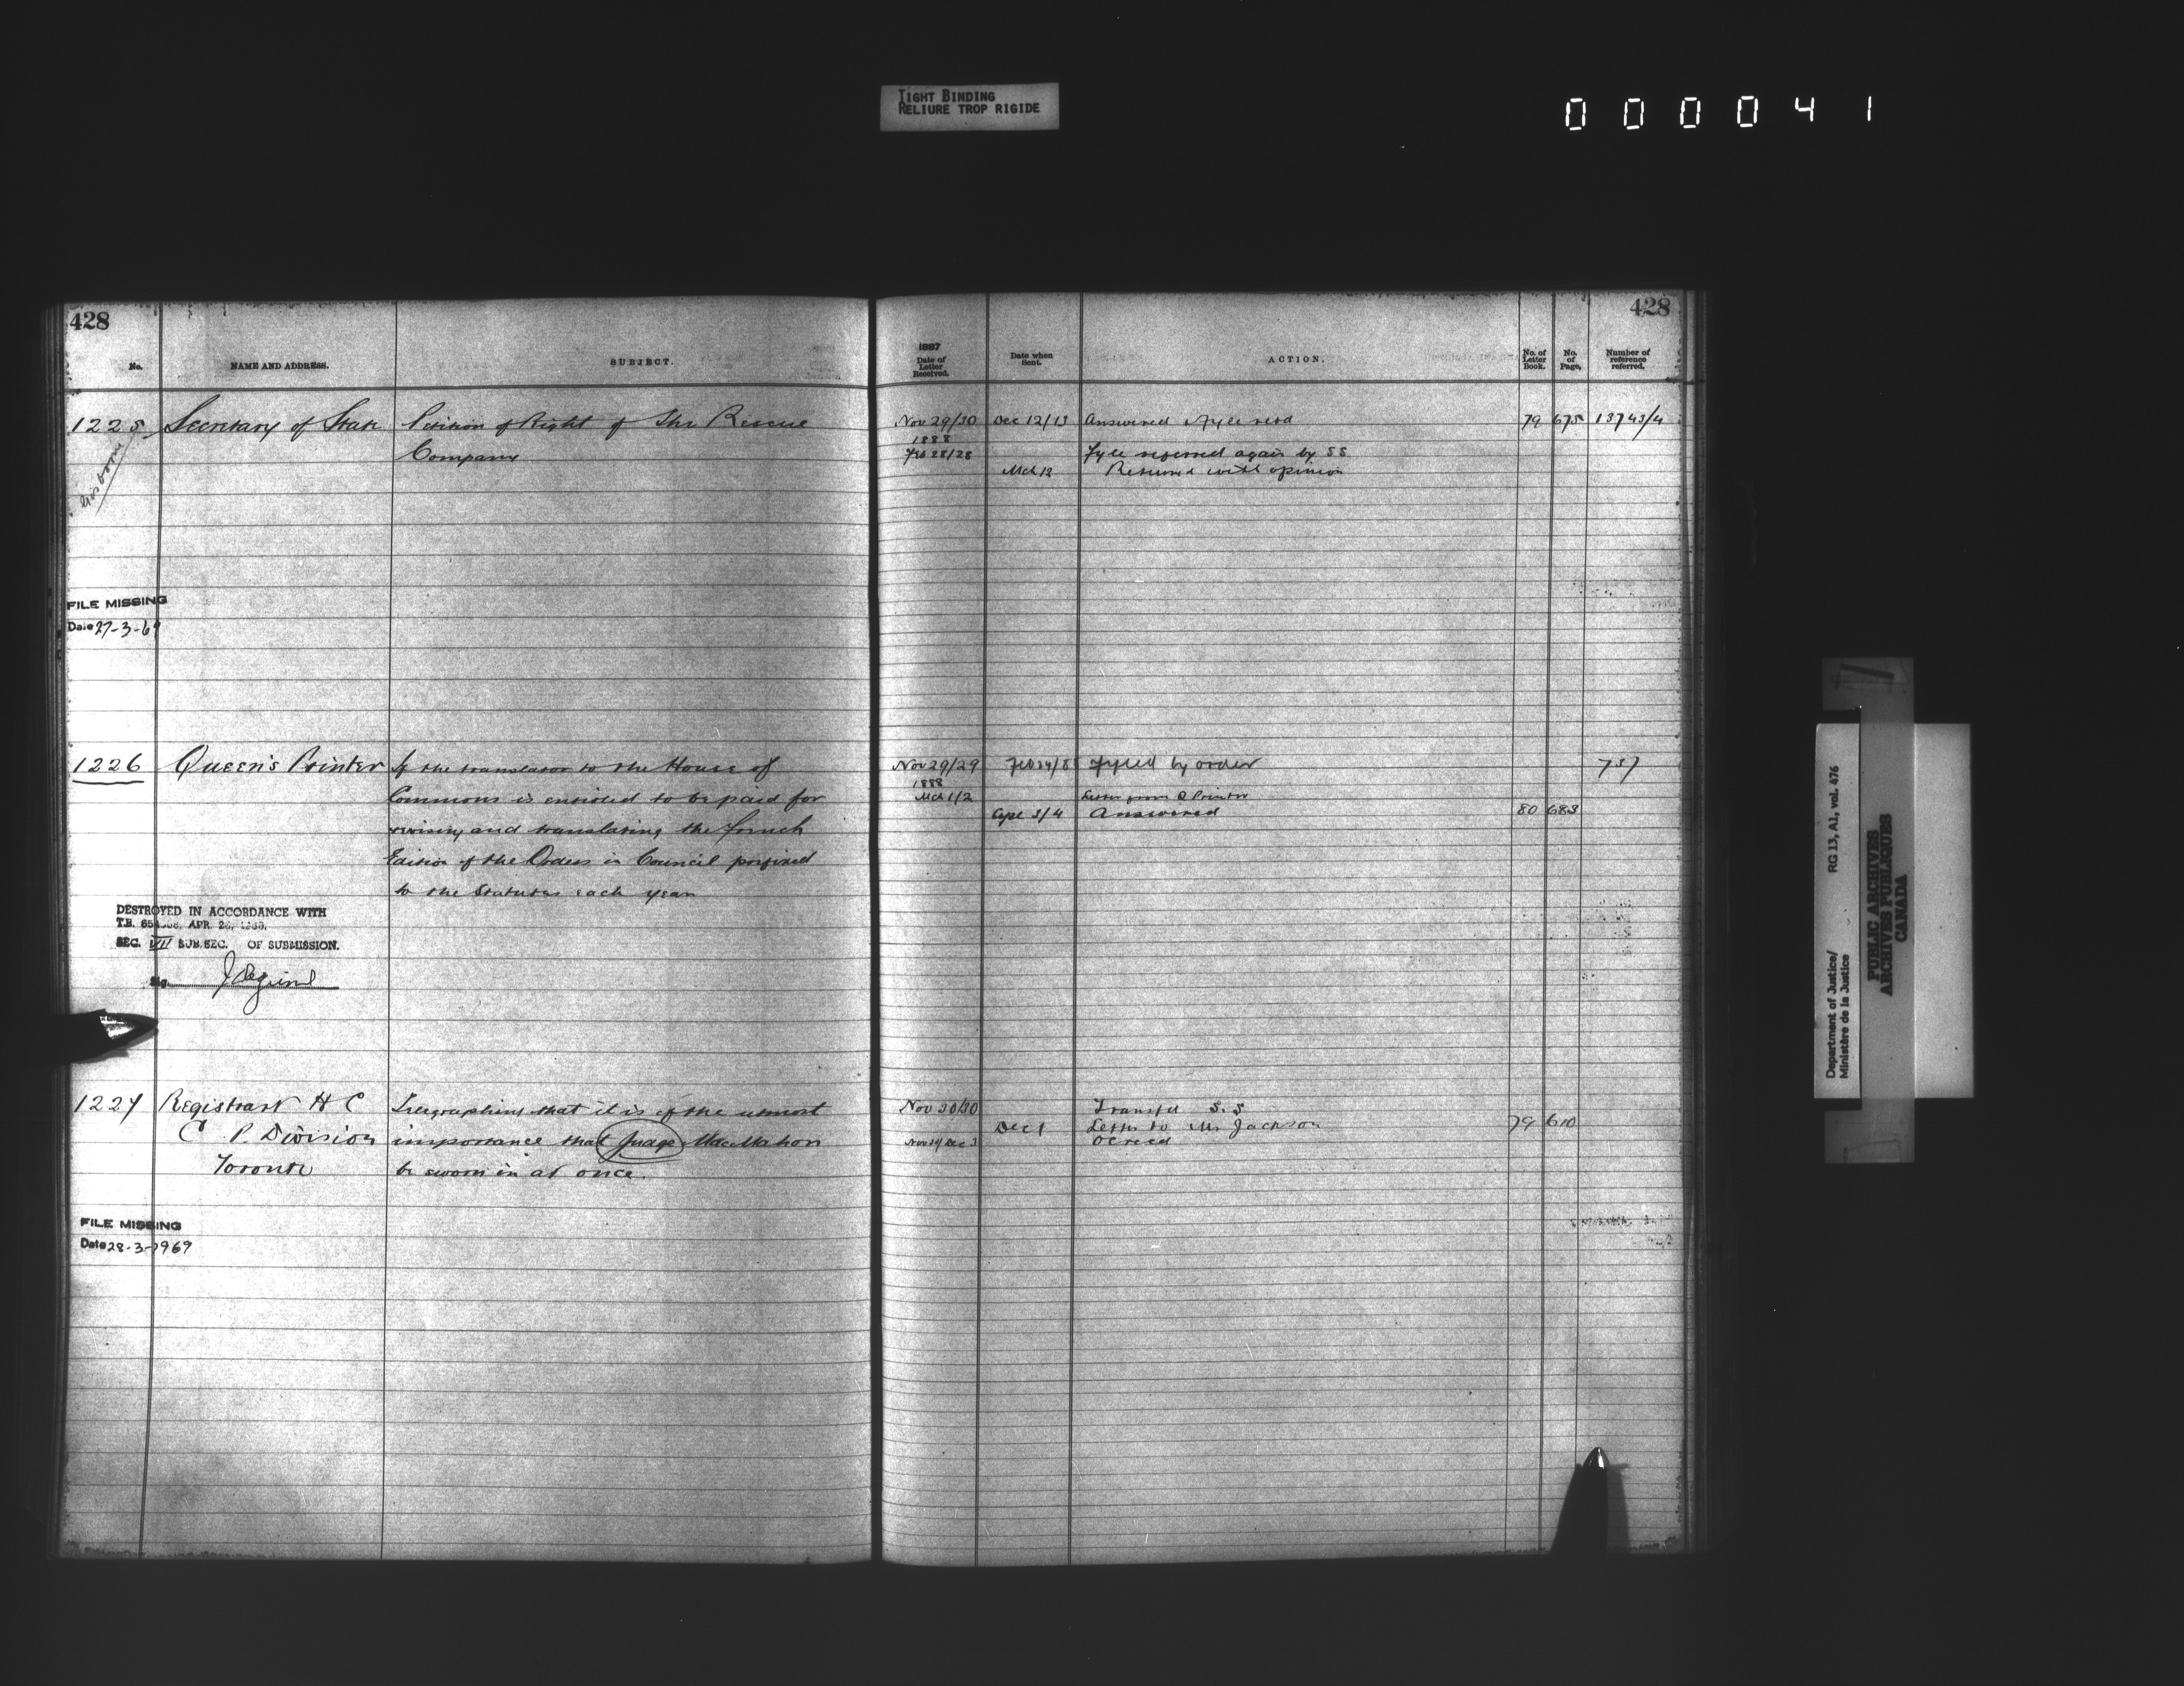 TIGHT BINDING
RELIURE TROP RIGIDE
000041
428
No.
NAME AND ADDRESS.
SUBJECT.
1225
Secretary of State
Petition of Right of The Rescue
Company
FILE MISSING
Date 27-3-69
1226
Queen's Printer
If the translator to the House of
Commons is entitled to be paid for
revising and translating the French
Edition of the Orders in Council prefixed
to the Statutes each year
DESTROYED IN ACCORDANCE WITH
T.B. APR. 26,
SEC. VII SUB. SEC. OF SUBMISSION.
Sig.
1227
Registrar H C
C P. Division
Toronto
Telegraphing that it is of the utmost
importance that Judge MacMahon
be sworn in at once.
FILE MISSING
Date 28-3-1969
428
1887
Date of
Letter
Received.
Date when
Sent.
ACTION.
No. of
Letter
Book.
No.
of
Page.
Number of
reference
referred.
Nov 29/30
Dec 12/13
Answered & Fyle retd
79
675
13743/4
1888
Feb 28/28
Fyle referred again by SS
Mch 13
Returned with opinion
Nov 29/29
Feb 24/8
Fyled by order
737
1888
Mch 1/2
Letter from Q Printer
Apl 3/4
Answered
80
683
Nov 30/30
Transfd S.S
Dec 1
Letter to Mr Jackson
79
610
Dec 3
Department of Justice/
Ministère de la Justice
RG 13, A1, vol. 476
PUBLIC ARCHIVES
ARCHIVES PUBLIQUES
CANADA